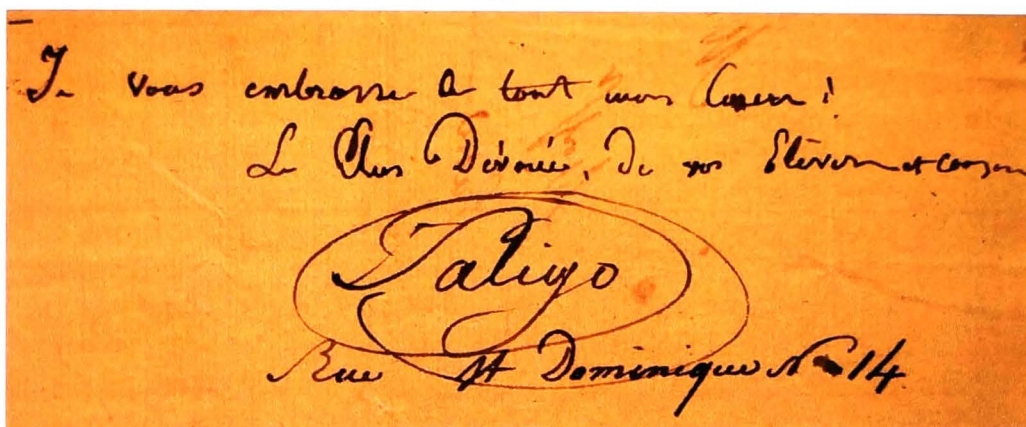 Je vous embrasse de tout mon Coeur!
Le Plus Dévoué, de vos Elèves et
Taligo
Rue St Dominique No 14